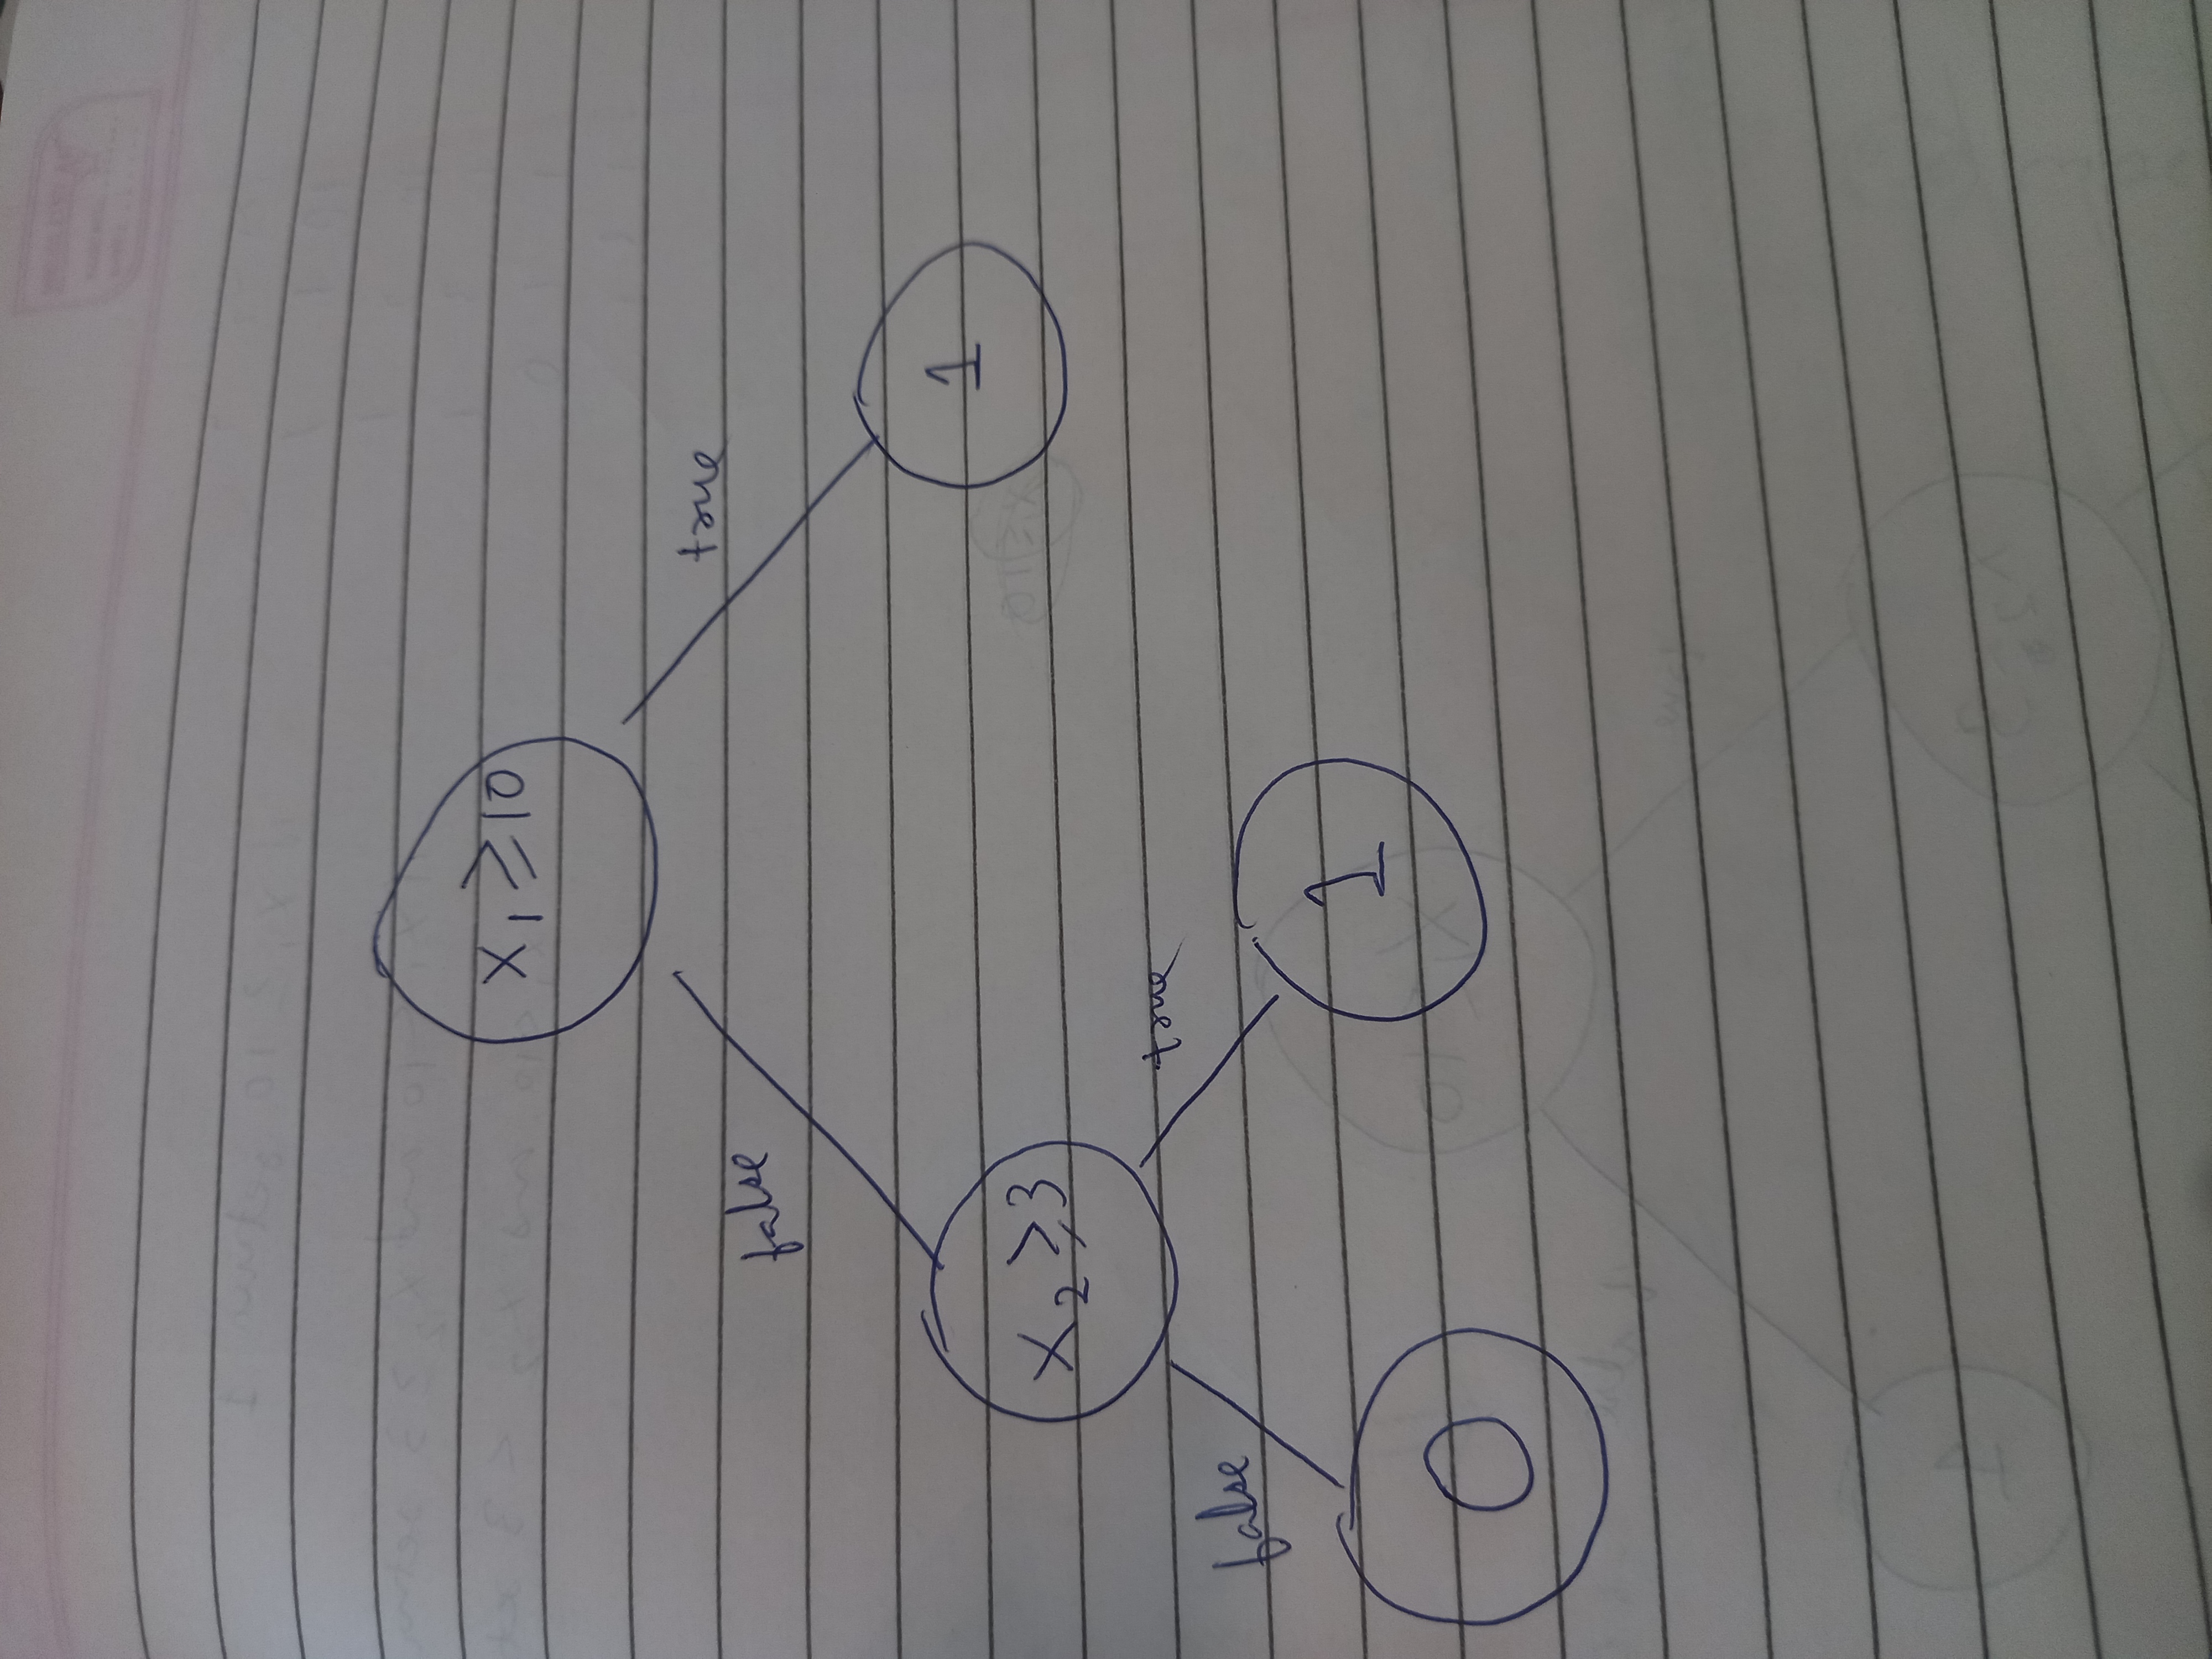 X₁ ≥ 10
false
true
X₂ ≥ 3
1
false
true
0
1